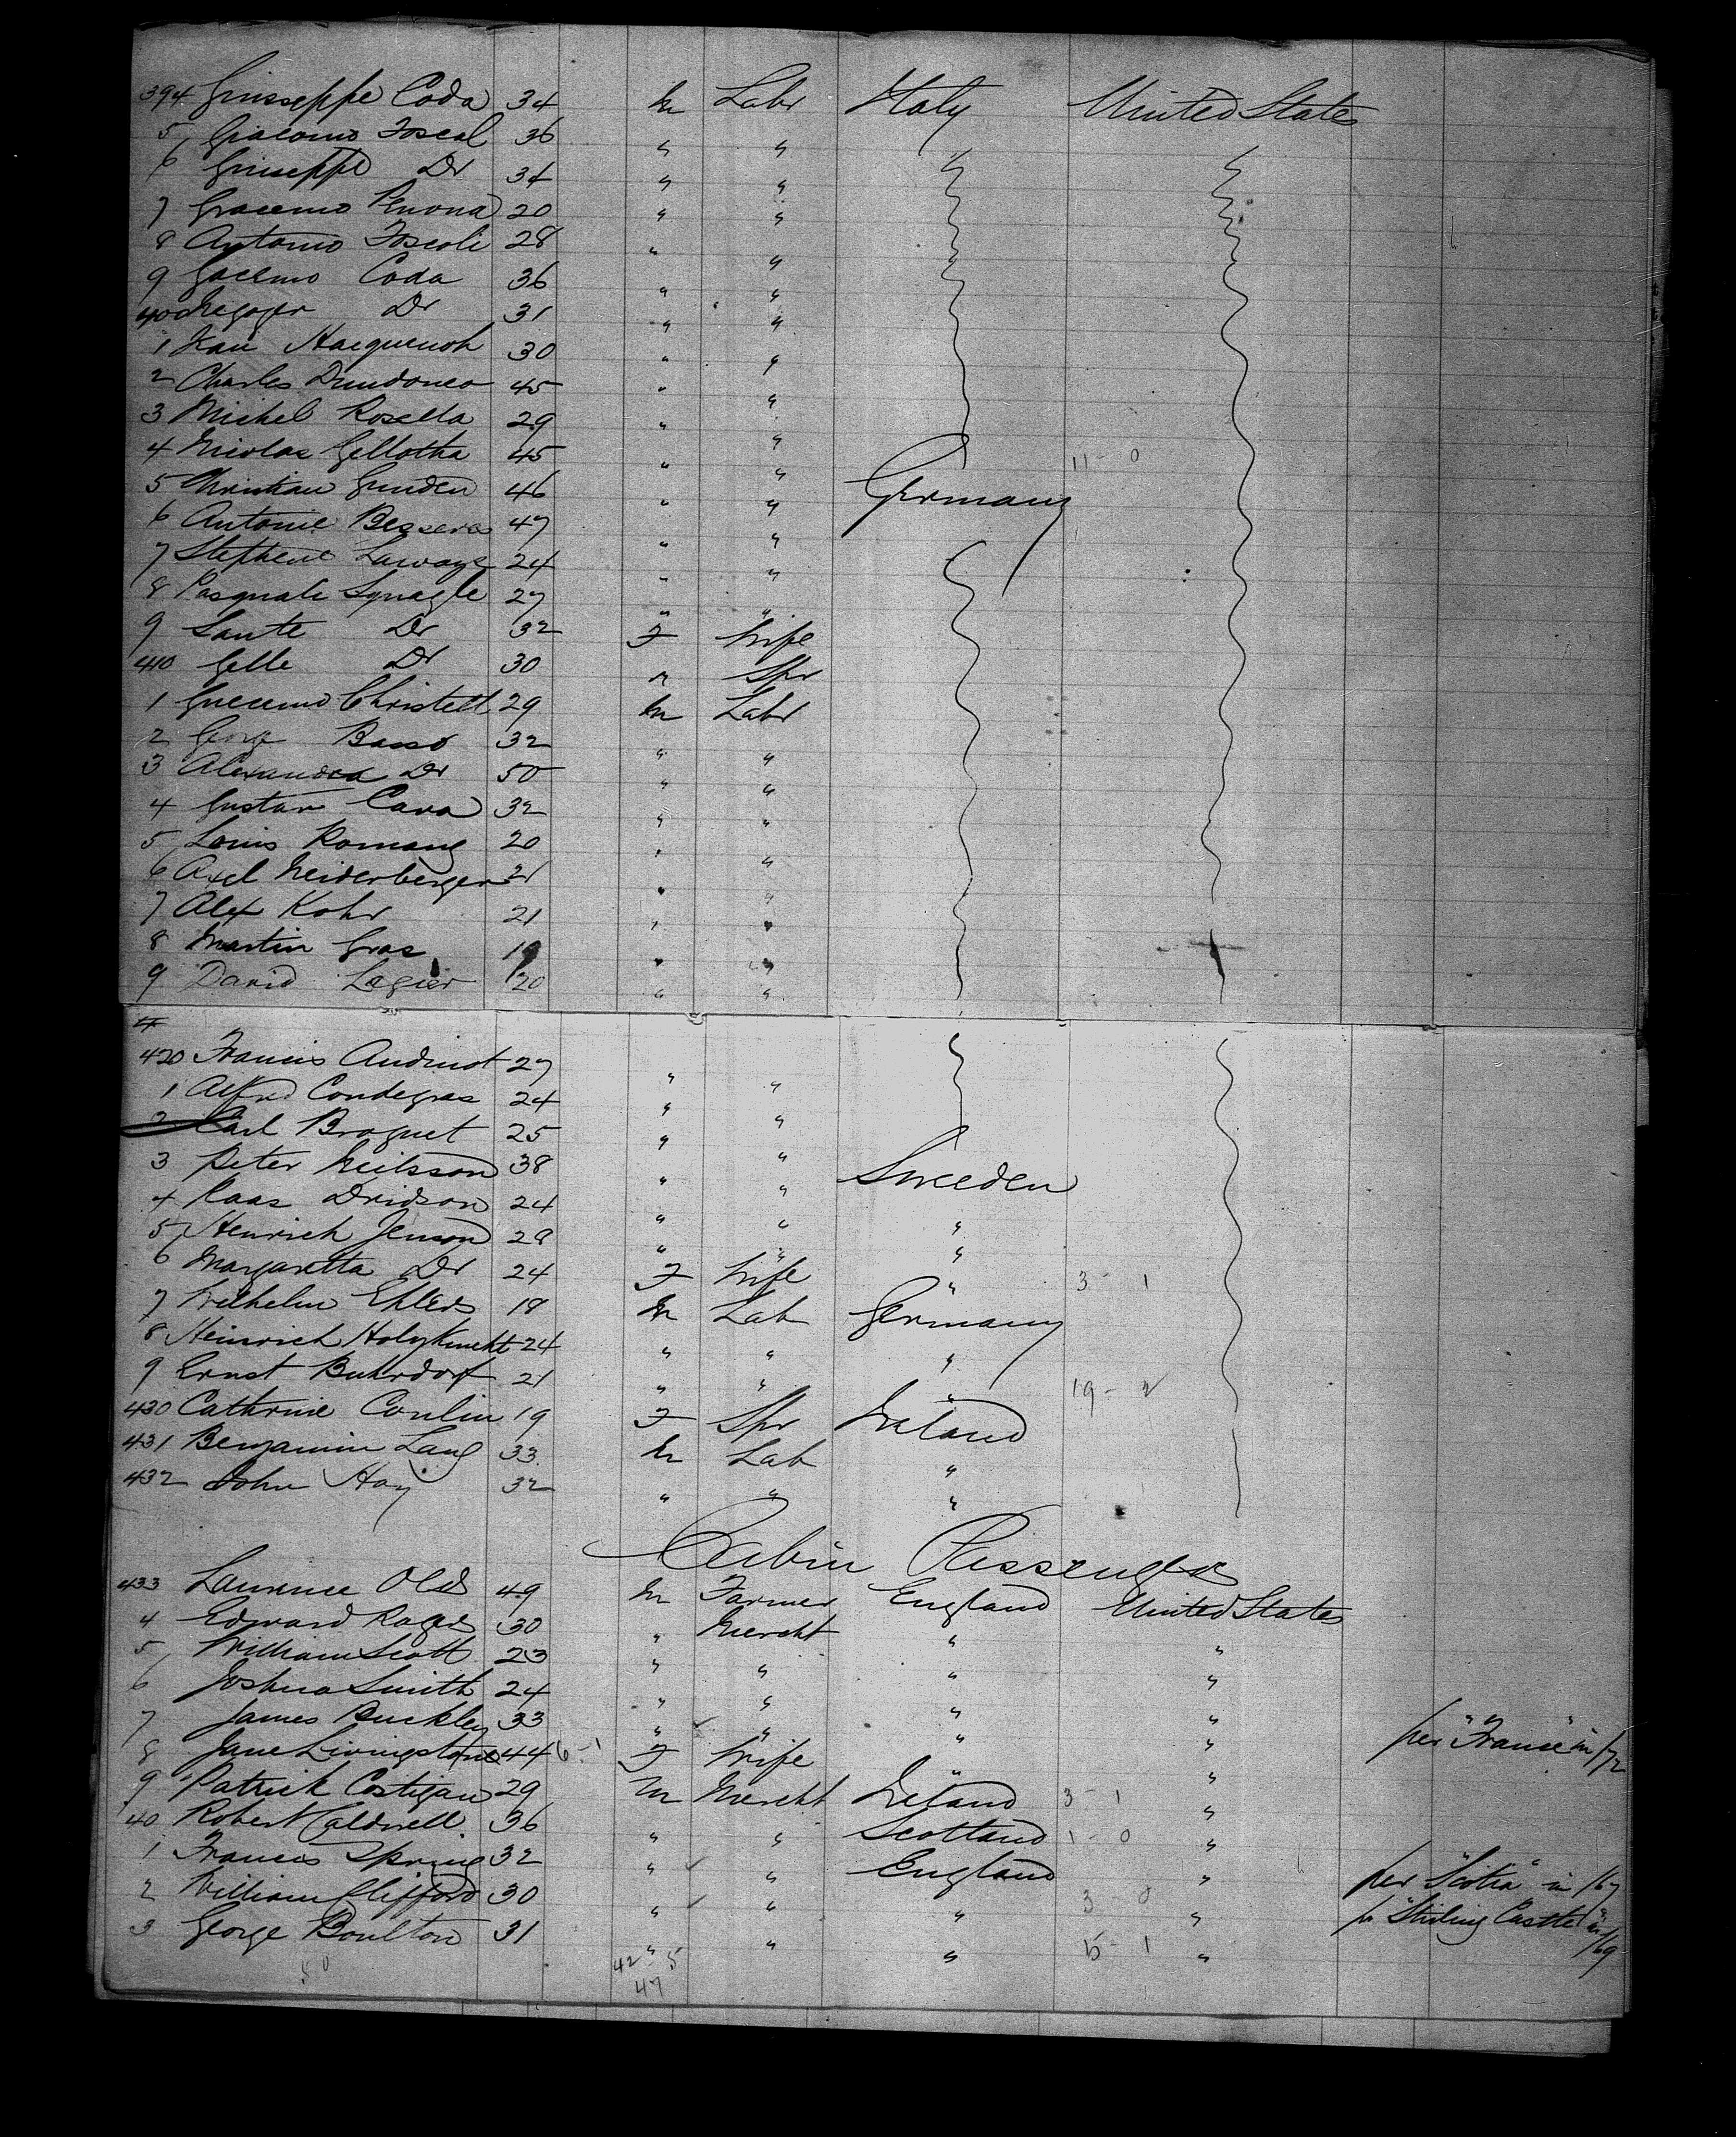 394 Giusseppe Coda 34 M Labr Italy United States
5 Giacomo Foscal 36 " "
6 Giuseppe Do 34 " "
7 Giacemo 20 " "
8 Antonio Foscoli 28 " "
9 Gacemo Coda 36 " "
400 Do 31 " "
1 30 " "
2 Charles 45 " "
3 Michel Rosella 29 " "
4 Nicolas Gellotha 45 " " 11 - 0
5 Christian Gunden 46 " " Germany
6 Antonie 47 " "
7 Stephene 24 " "
8 Pasquale 27 " "
9 Sante Do 32 F Wife
410 Gelle Do 30 " Spr
1 Guecemo Christell 29 M Labr
2 George Basso 32 " "
3 Alexandra Do 50 " "
4 Gustav Cava 32 " "
5 Louis Romang 20 " "
6 Axel Neiderberger 21 " "
7 Alex Kohr 21 " "
8 Martin Gras 19 " "
9 David Lagier 20 " "
420 Francis Audinot 27 " "
1 Alfred Condegras 24 " "
2 Carl Broguet 25 " "
3 Peter Neilsson 38 " " Sweeden
4 Claas Dridson 24 " " "
5 Henrich Jenson 28 " " "
6 Margaretta Do 24 F Wife " 3 - 1
7 Wilhelm Ehlers 18 M Lab Germany
8 Heinrich Holzknecht 24 " " "
9 Ernst Buhrdorf 21 " " " 19 - 2
430 Cathrine Conlin 19 F Spr Ireland
431 Benjamin Lang 33 M Lab "
432 John Hay 32 " " "
Cabin Passengers
433 Laurence Olds 49 M Farmer England United States
4 Edward Rogers 30 " Mercht " "
5 William Scott 23 " " " "
6 Joshua Smith 24 " " " "
7 James Buckley 33 " " " " per "France" in /72
8 Jane Livingstone 44 6-1 F Wife " "
9 Patrick Costigan 29 M Mercht Ireland 3 - 1 "
40 Robert Caldwell 36 " " Scotland 1 - 0 "
1 Francis Spring 32 " " England " per "Scotia" in /67
2 William Clifford 30 " " " 3 0 " pr "Stirling Castle" in /69
3 George Boulton 31 " " " 15 - 1 "
50 42 - 5
47